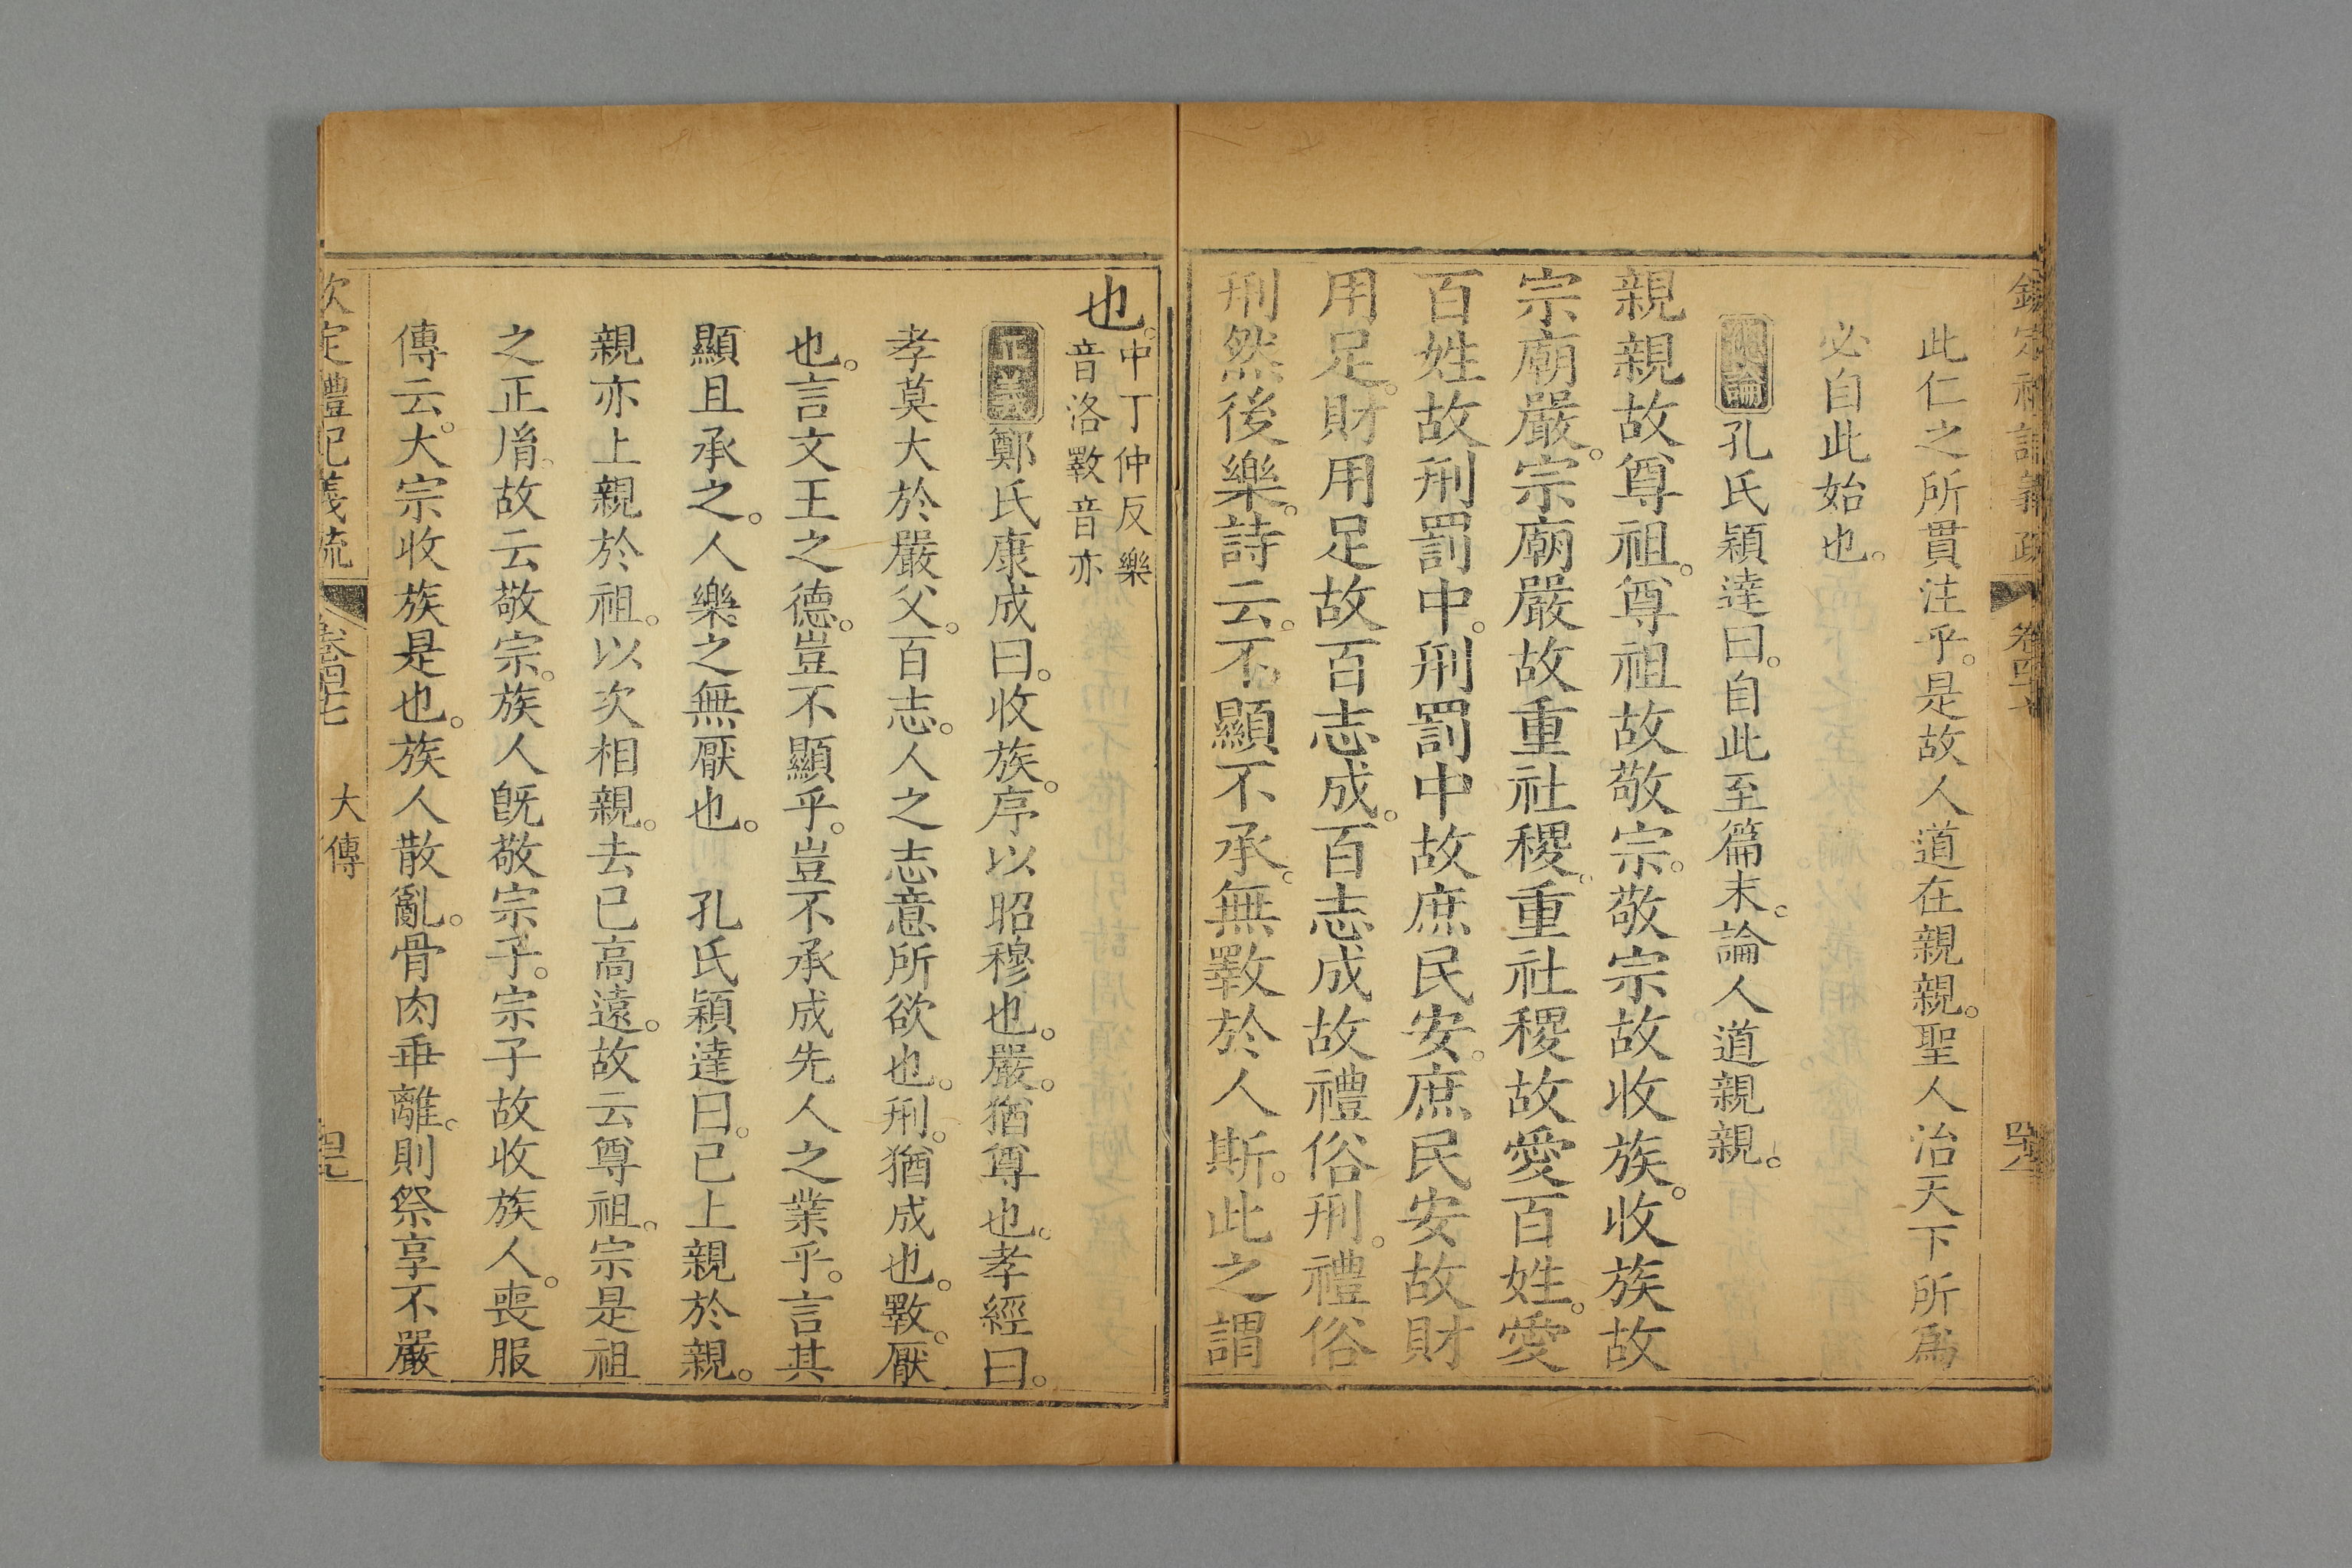 此仁之所貫注乎。是故人道在親親。聖人治天下所為
必自此始也。
總論孔氏穎達曰。自此至篇末。論人道親親。
親親故尊祖。尊祖故敬宗。敬宗故收族。收族故
宗廟嚴。宗廟嚴故重社稷。重社稷故愛百姓。愛
百姓故刑罰中。刑罰中故庶民安。庶民安故財
用足。財用足故百志成。百志成故禮俗刑。禮俗
刑然後樂。詩云。不顯不承。無斁於人斯。此之謂
也。中丁仲反樂
音洛斁音亦
正義鄭氏康成曰。收族。序以昭穆也。嚴。猶尊也。孝經曰。
孝莫大於嚴父。百志。人之志意所欲也。刑。猶成也。斁。厭
也。言文王之德。豈不顯乎。豈不承成先人之業乎。言其
顯且承之。人樂之無厭也。 孔氏穎達曰。已上親於親。
親亦上親於祖。以次相親。去已高遠。故云尊祖。宗是祖
之正胤。故云敬宗。族人旣敬宗子。宗子故收族人。喪服
傳云。大宗收族是也。族人散亂。骨肉乖離。則祭享不嚴
欽定禮記義疏 卷四十七 大傳 四九